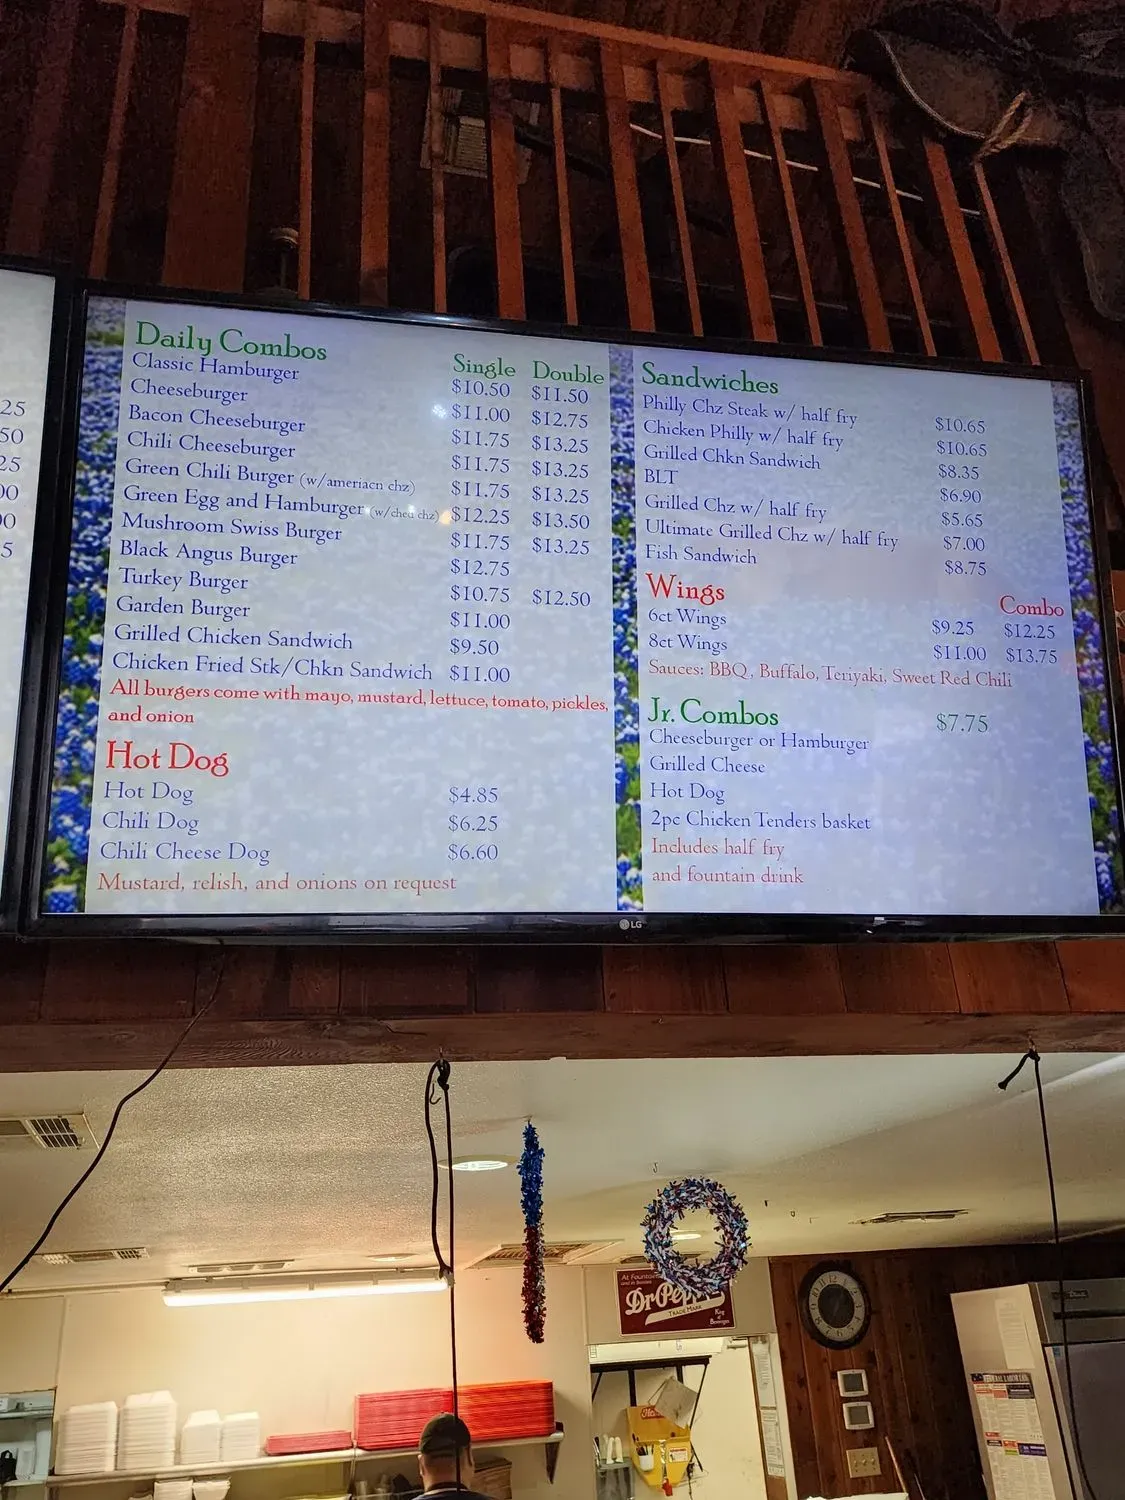 25
50
25
00
00
5
Daily Combos Single Double
Classic Hamburger $10.50 $11.50
Cheeseburger $11.00 $12.75
Bacon Cheeseburger $11.75 $13.25
Chili Cheeseburger $11.75 $13.25
Green Chili Burger (w/ameriacn chz) $11.75 $13.25
Green Egg and Hamburger $12.25 $13.50
Mushroom Swiss Burger $11.75 $13.25
Black Angus Burger $12.75
Turkey Burger $10.75 $12.50
Garden Burger $11.00
Grilled Chicken Sandwich $9.50
Chicken Fried Stk/Chkn Sandwich $11.00
All burgers come with mayo, mustard, lettuce, tomato, pickles,
and onion
Hot Dog
Hot Dog $4.85
Chili Dog $6.25
Chili Cheese Dog $6.60
Mustard, relish, and onions on request
Sandwiches
Philly Chz Steak w/ half fry $10.65
Chicken Philly w/ half fry $10.65
Grilled Chkn Sandwich $8.35
BLT $6.90
Grilled Chz w/ half fry $5.65
Ultimate Grilled Chz w/ half fry $7.00
Fish Sandwich $8.75
Wings Combo
6ct Wings $9.25 $12.25
8ct Wings $11.00 $13.75
Sauces: BBQ, Buffalo, Teriyaki, Sweet Red Chili
Jr. Combos $7.75
Cheeseburger or Hamburger
Grilled Cheese
Hot Dog
2pc Chicken Tenders basket
Includes half fry
and fountain drink
LG
At Fountains
Dr Pepper
TRADE MARK
King
Beverages